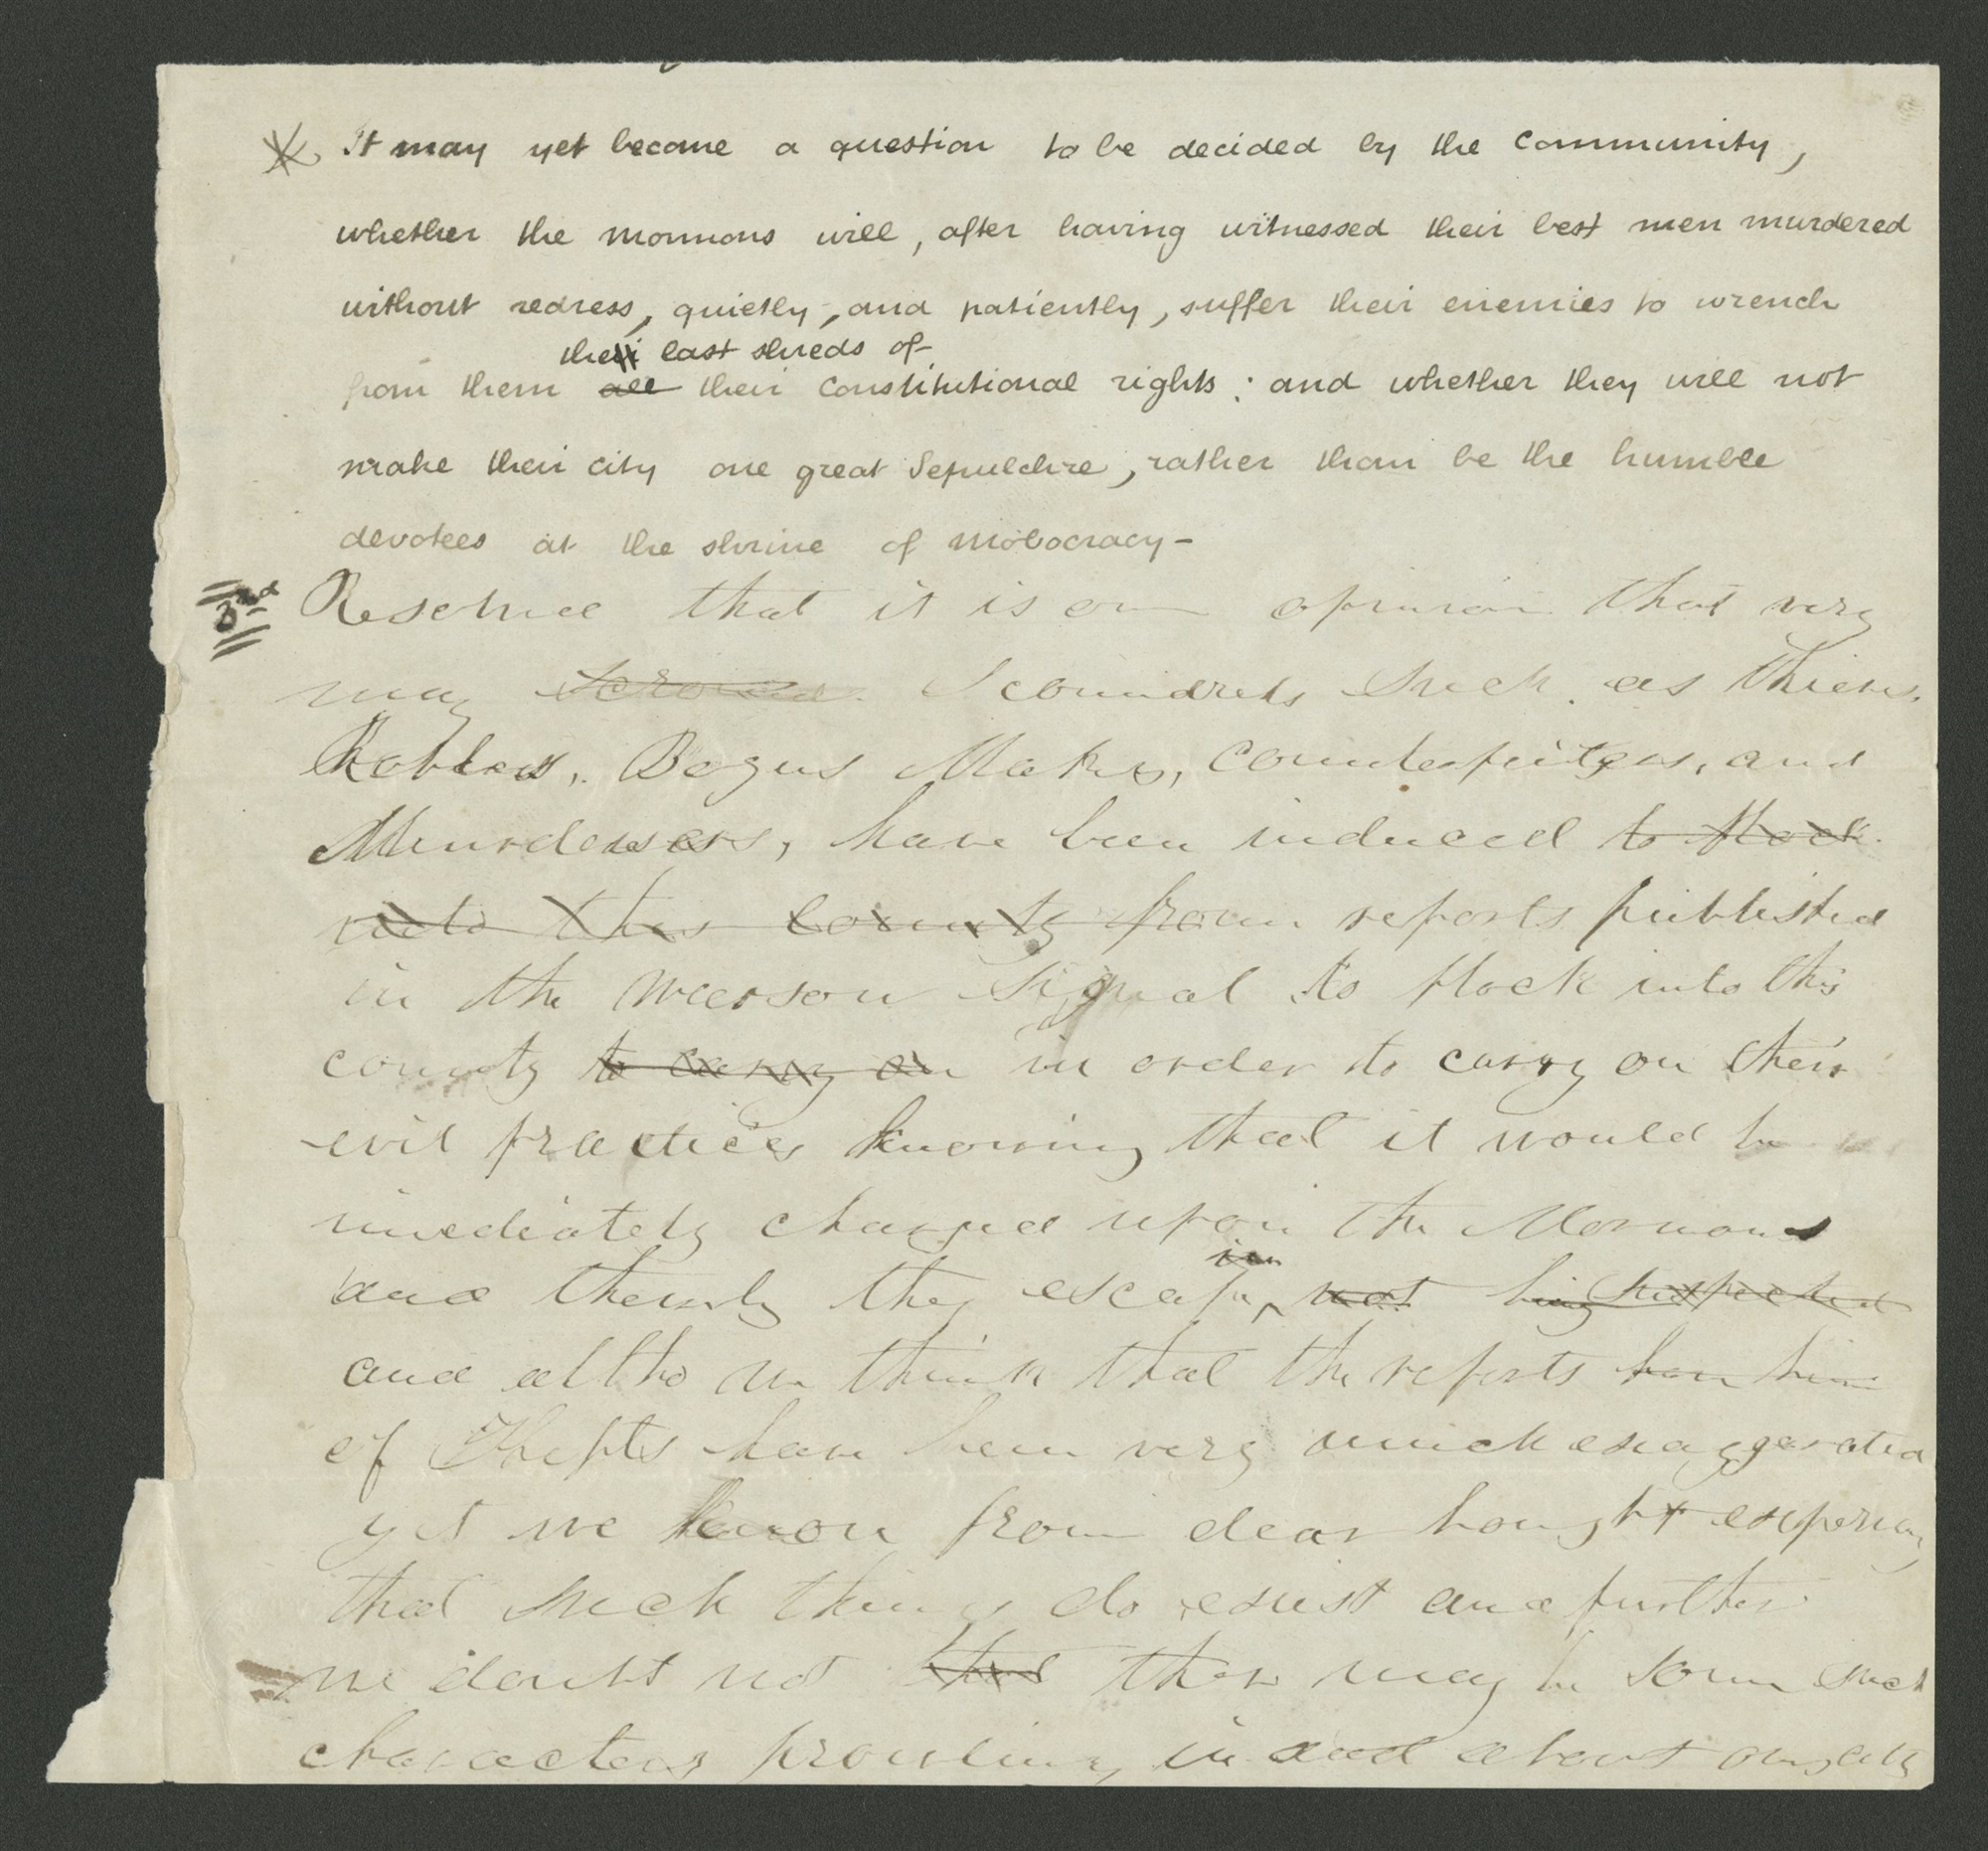 It may yet become a question to be decided by the community,
whether the mormons will, after having witnessed their best men murdered
without redress, quietly, and patiently, suffer their enemies to wrench
the last shreds of
from them all their constitutional rights: and whether they will not
make their city one great Sepulchre, rather than be the humble
devotees at the shrine of mobocracy-
3rd Resolved that it is our opinion that very
many Scoundrels Such as Thieves.
Robbers, Bogus Makers, counterfeiters, and
Murderers, have been induced to flock
into this county from reports published
in the Warsaw Signal to flock into this
county to carry on in order to carry on their
evil practices knowing that it would be
imediately charged upon the Mormons
and thereby they escape not being suspected
and altho we think that the reports have been
of Thefts have been very much exaggerated
yet we know from dear bought experience
that such things do exist and further
we doubt not that there may be some such
characters prowling in and about our city